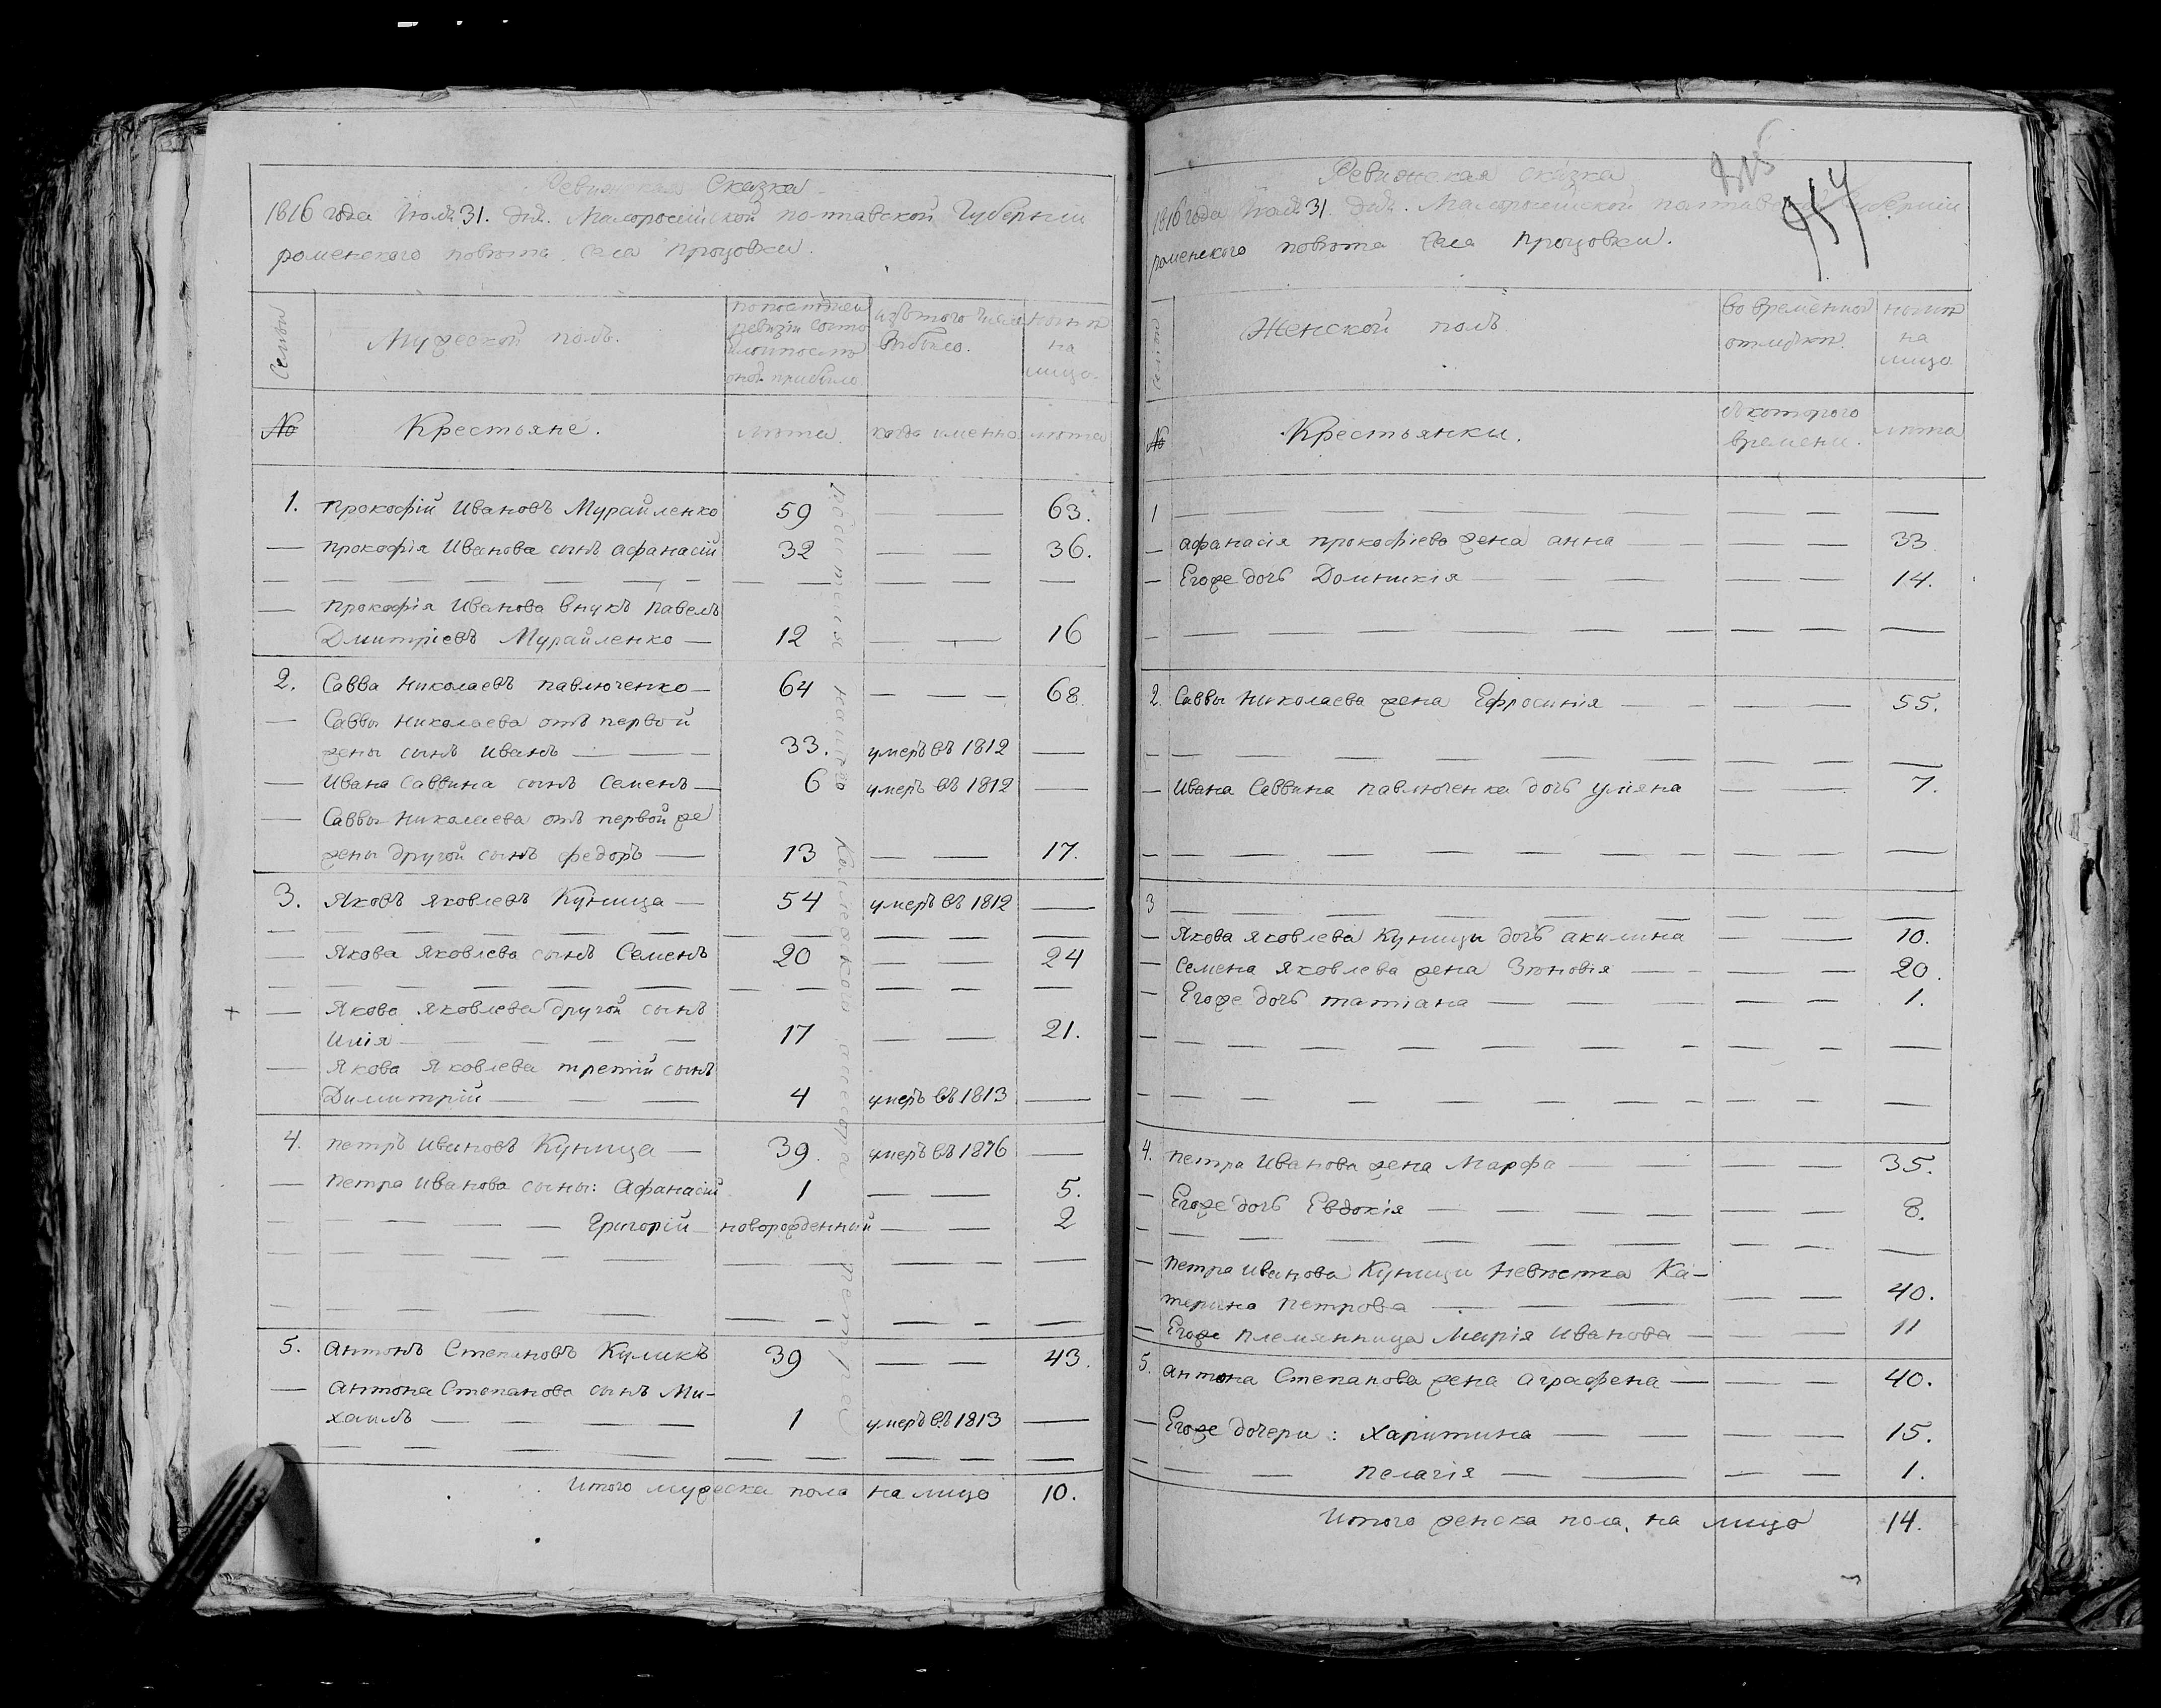 Ревизская Сказка
1816 года Июля 31. дня. Малоросийской полтавской Губернии
роменского повета села Процовки.
Семьи
Мужеской полъ.
по последней
ревизіи состо
яло и после
оной прибыло.
изъ того числа
выбыло.
ныне
на
лицо.
№
Крестьяне.
лета.
когда именно
лета
1. прокофій Ивановъ Мурайленко 59 — — 63.
— прокофія Иванова сынъ афанасій 32 — — 36.
— прокофія Иванова внукъ павелъ
Дмитріевъ Мурайленко — 12 — 16
2. Савва николаевъ павлюченко — 64 — — — 68.
— Саввы николаева отъ первой
жены сынъ иванъ — — — 33. умеръ въ 1812 —
— ивана Саввина сынъ Семенъ — 6 умеръ въ 1812 —
— Саввы николаева отъ первой же
жены другой сынъ федоръ — 13 — — 17.
3. Яковъ яковлевъ Куница — 54 умеръ въ 1812 —
— Якова яковлева сынъ Семенъ 20 — — 24
— Якова яковлева другой сынъ
илія — — — — 17 — — 21.
— Якова яковлева третій сынъ
Димитрій — — — 4 умеръ въ 1813 —
4. петръ ивановъ Куница — 39. умеръ въ 1816 —
— петра иванова сыны: афанасій 1 — — 5.
— — — — — Григорій — новорожденный — — 2
5. антонъ Степановъ Куликъ 39 — — 43.
— антона Степанова сынъ Ми-
хаилъ — — — — 1 умеръ въ 1813 —
Итого мужеска пола на лицо 10.
Ревизская сказка
1816 года Июля 31. дня. Малоросийской полтавской Губернии
роменского повета села Процовки.
914
Семьи
Женской полъ.
во временной
отлучки.
ныне
на
лицо.
№
Крестьянки.
с которого
времени.
лета
1 — — — — — —
— афанасія прокофіева жена анна — — — 33
— Егоже дочь Домникія — — — — 14.
2. Саввы николаева жена Ефросинія — — — — 55.
— ивана Саввина павлюченка дочь уліяна — — 7.
3 — — — — — —
— Якова яковлева Куницы дочь акилина — — 10.
— Семена яковлева жена Зѣновія — — — — 20.
— Егоже дочь татіана — — — — — 1.
4. петра иванова жена Марфа — — — — 35.
— Егоже дочь Евдокія — — — — — — 8.
— петра иванова Куницы невѣстка Ка-
терина петрова — — — — — 40.
— Егоже племянница Марія иванова — — — 11
5. антона Степанова жена аграфена — — — 40.
— Егоже дочери: харитина — — — — — 15.
— — пелагія — — — — 1.
Итого женска пола, на лицо 14.